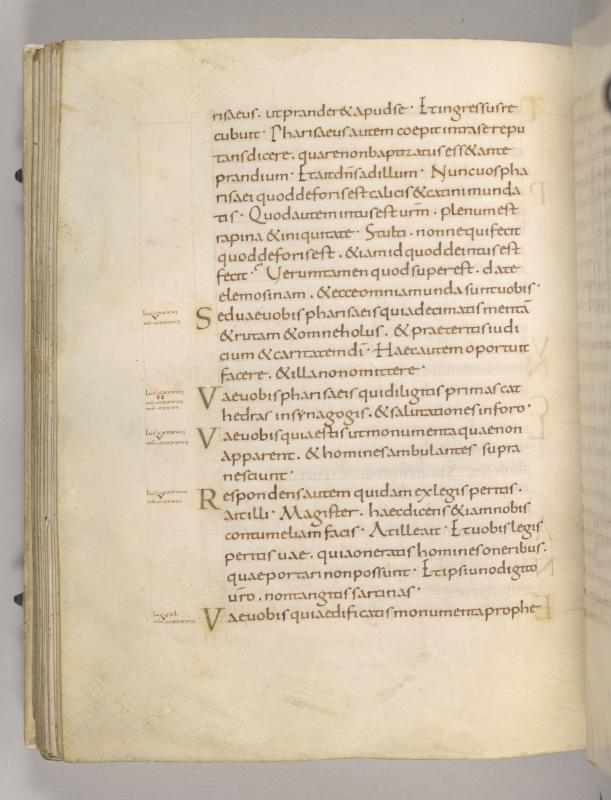 risaeus. ut prander& apud se · Et ingressus re
cubuit · Pharisaeus autem coepit intra se repu
tans dicere. quare non baptizatus ess& ante
prandium · Et ait dns̄ ad illum · Nunc uos pha
risaei quod deforis est calicis & catini munda
tis · Quod autem intus est urm̄ · plenum est
rapina & iniquitate · Stulti · nonne qui fecit
quod deforis est. & iam id quod deintus est
fecit · Uerumtamen quod superest. date
elemosinam. & ecce omnia munda sunt uobis ·
Sed uae uobis pharisaeis quia decimatis mentā
& rutam & omne holus. & praeteritis iudi
cium & caritatem dī · Haec autem oportuit
facere. & illa non omittere ·
Vae uobis pharisaeis qui diligitis primas cat
hedras in synagogis. & salutationes in foro ·
Vae uobis quia estis ut monumenta quae non
apparent. & homines ambulantes supra
nesciunt ·
Respondens autem quidam ex legis peritis.
ait illi · Magister. haec dicens & iam nobis
contumeliam facis · At ille ait · Et uobis legis
peritis uae. quia oneratis homines oneribus.
quae portari non possunt · Et ipsi uno digito
ur̄o. non tangitis sarcinas ·
Vae uobis quia edificatis monumenta prophe